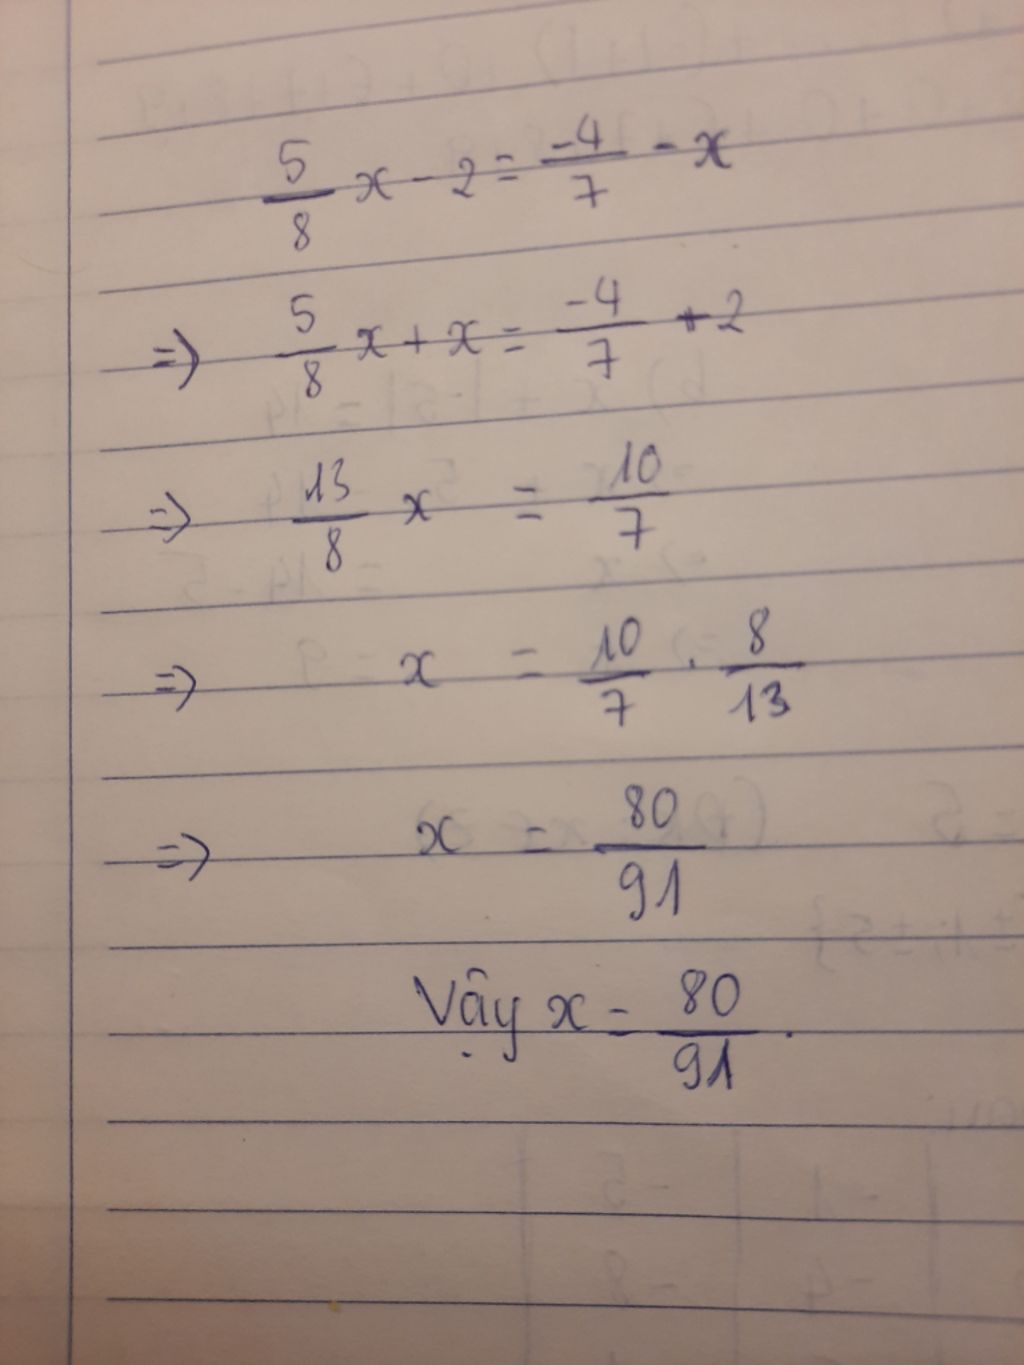 5/8 x - 2 = -4/7 - x
=> 5/8 x + x = -4/7 + 2
=> 13/8 x = 10/7
=> x = 10/7 . 8/13
=> x = 80/91
Vậy x = 80/91.